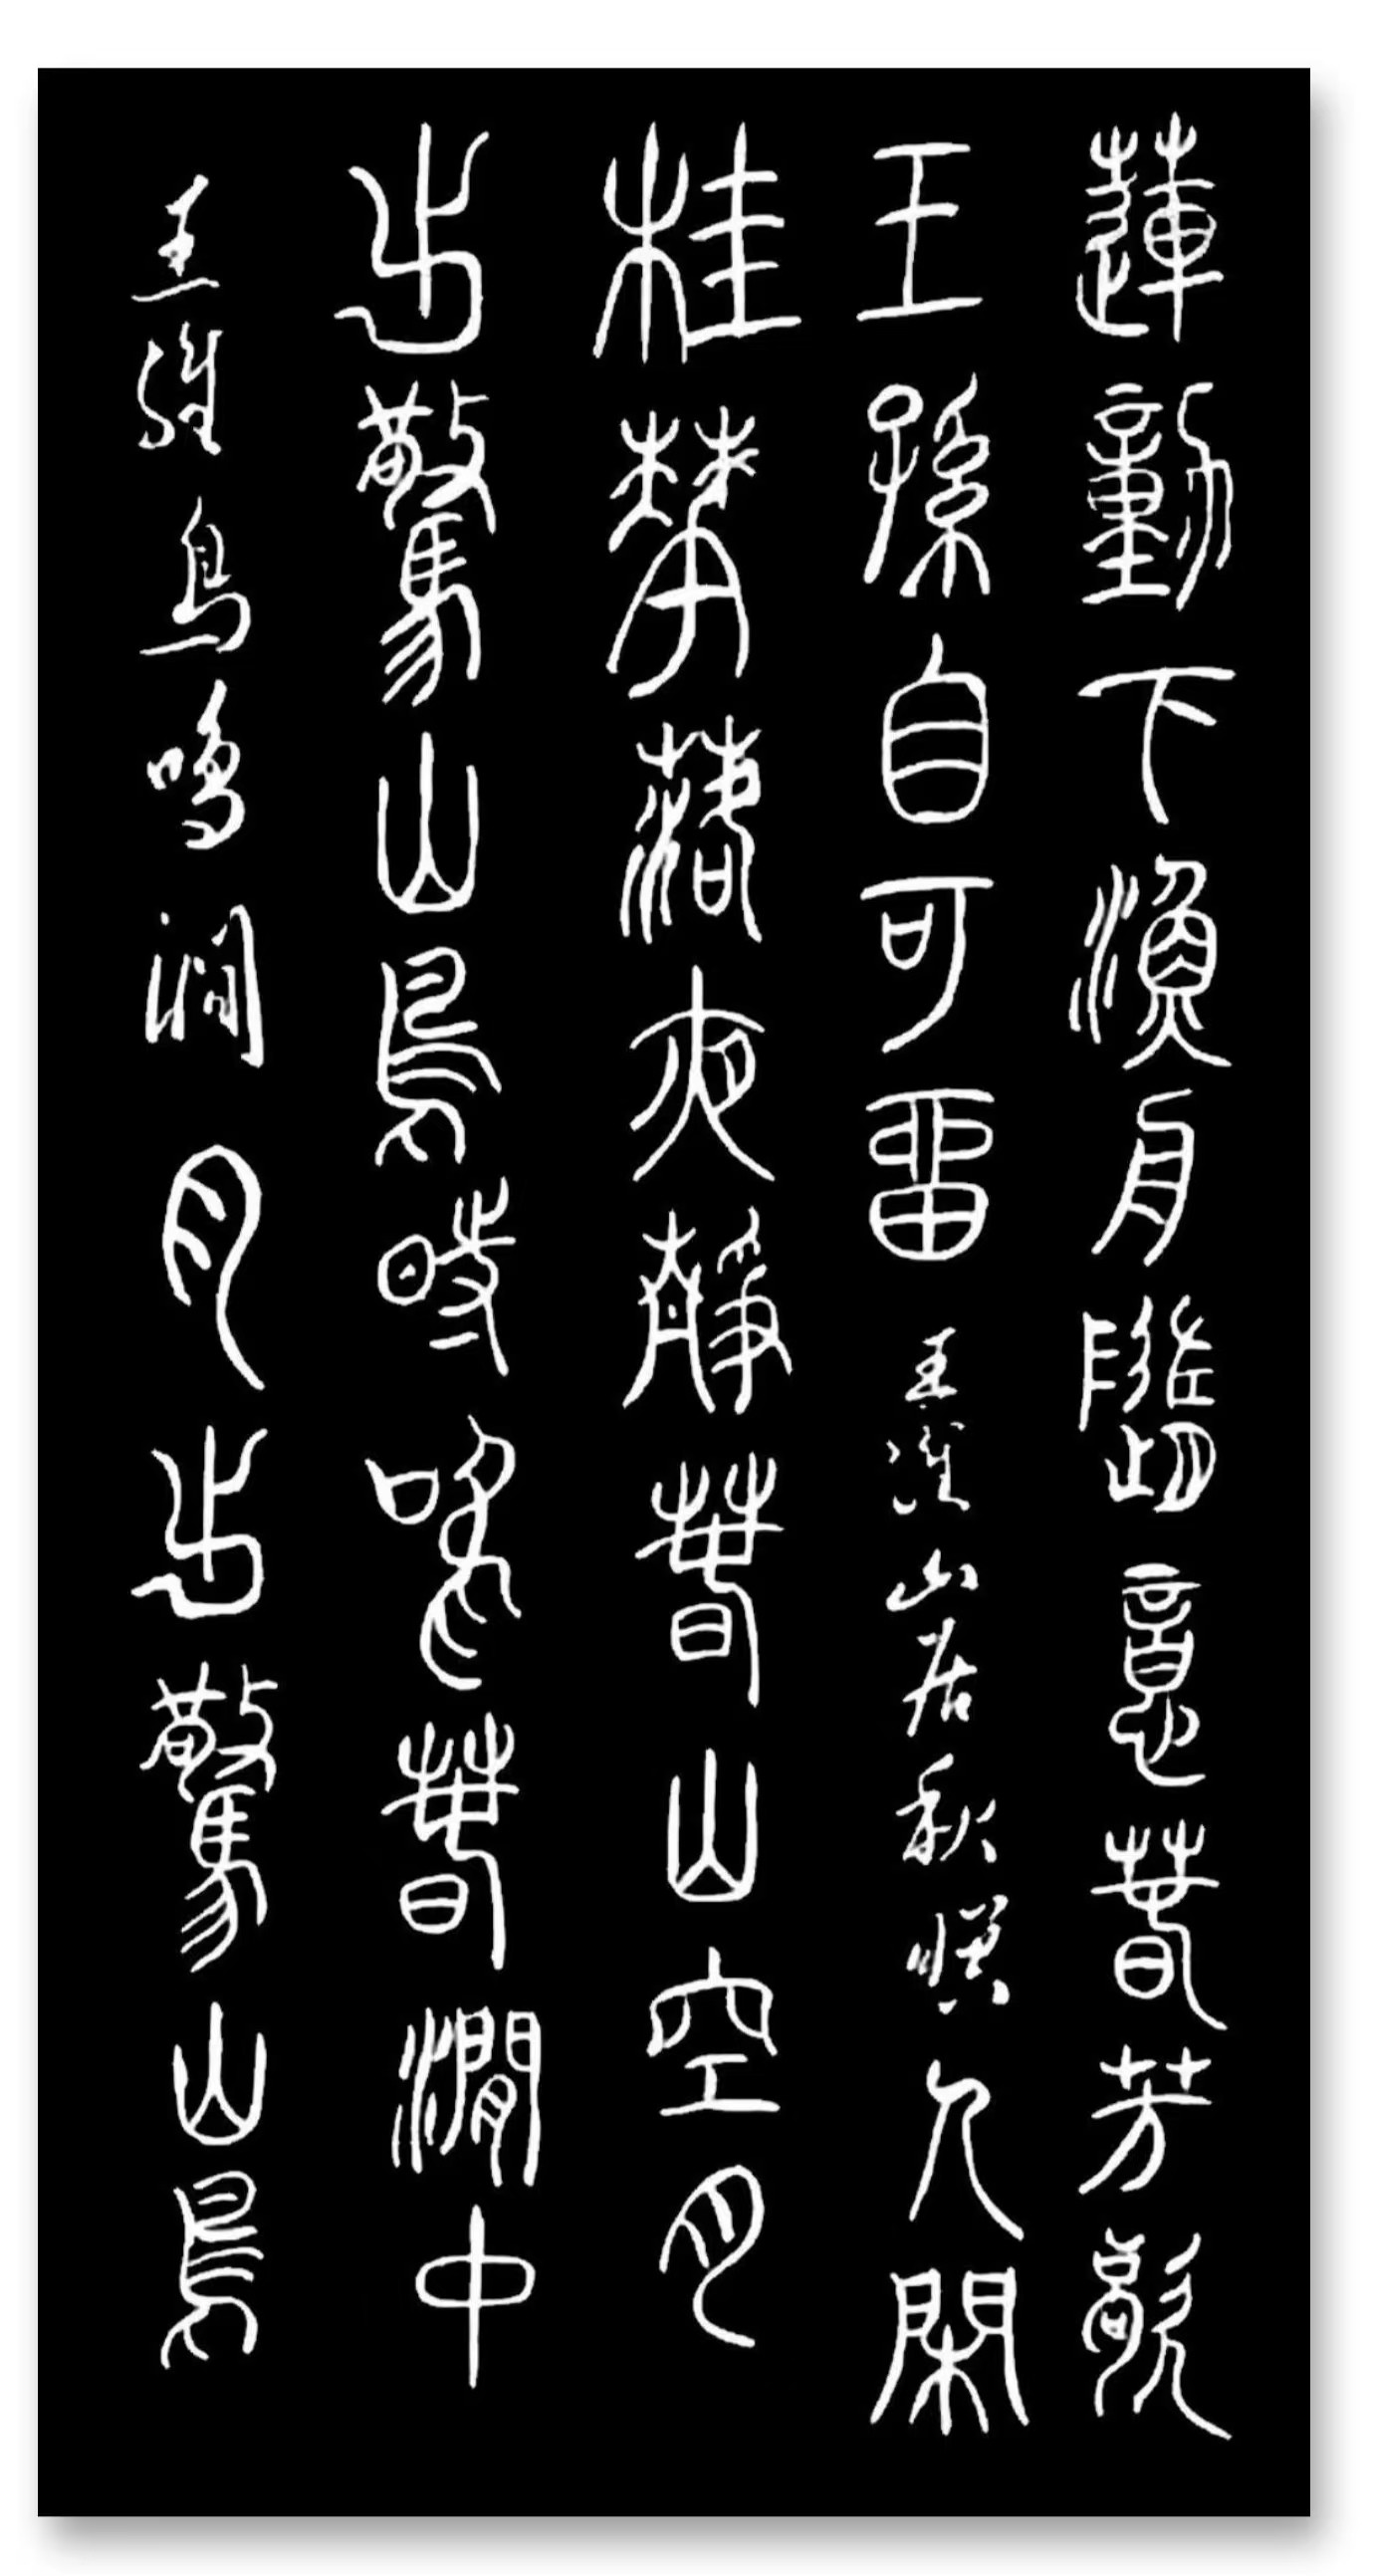 蓮動下漁舟隨意萅芳歇
王孫自可留王維山居秋暝人閑
桂華落夜靜萅山空月
出驚山鳥時鳴萅澗中
王維鳥鳴澗月出驚山鳥